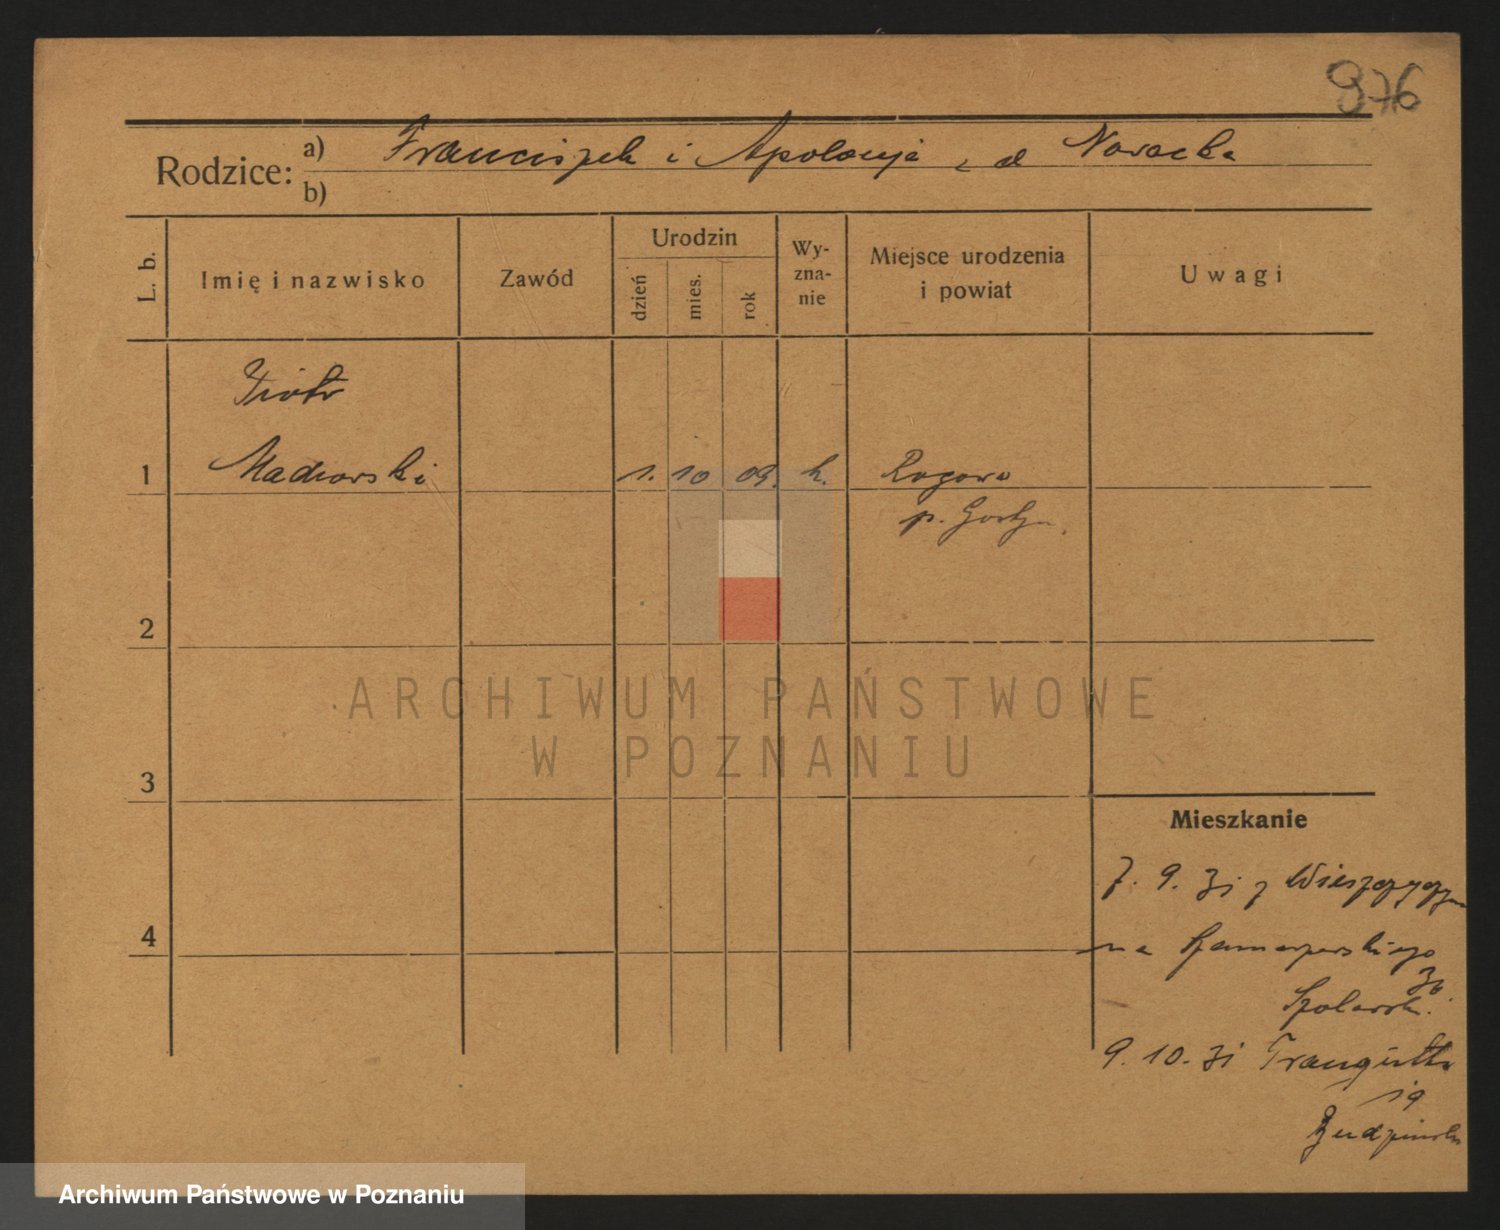 976
Rodzice:
a) Franciszek i Apolonja z d Nowacka
b)
L. b.
Imię i nazwisko
Zawód
Urodzin
dzień
mies.
rok
Wy-
zna-
nie
Miejsce urodzenia
i powiat
Uwagi
Piotr
1
1. 10 09. k. Rogowo
p. Gostyń
2
ARCHIWUM PAŃSTWOWE
W POZNANIU
3
Mieszkanie
7. 9. 31 z
4
na
36
9. 10. 31 Traugutta
19
Archiwum Państwowe w Poznaniu